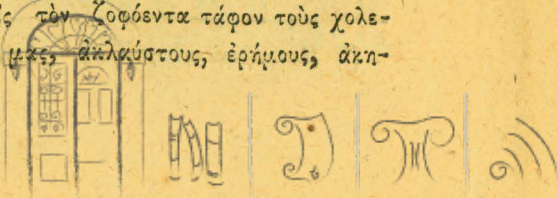 τὸν ζοφόεντα τάφον τοὺς χολε-
μας, ἀκλαύστους, ἐρήμους, ἀκη-